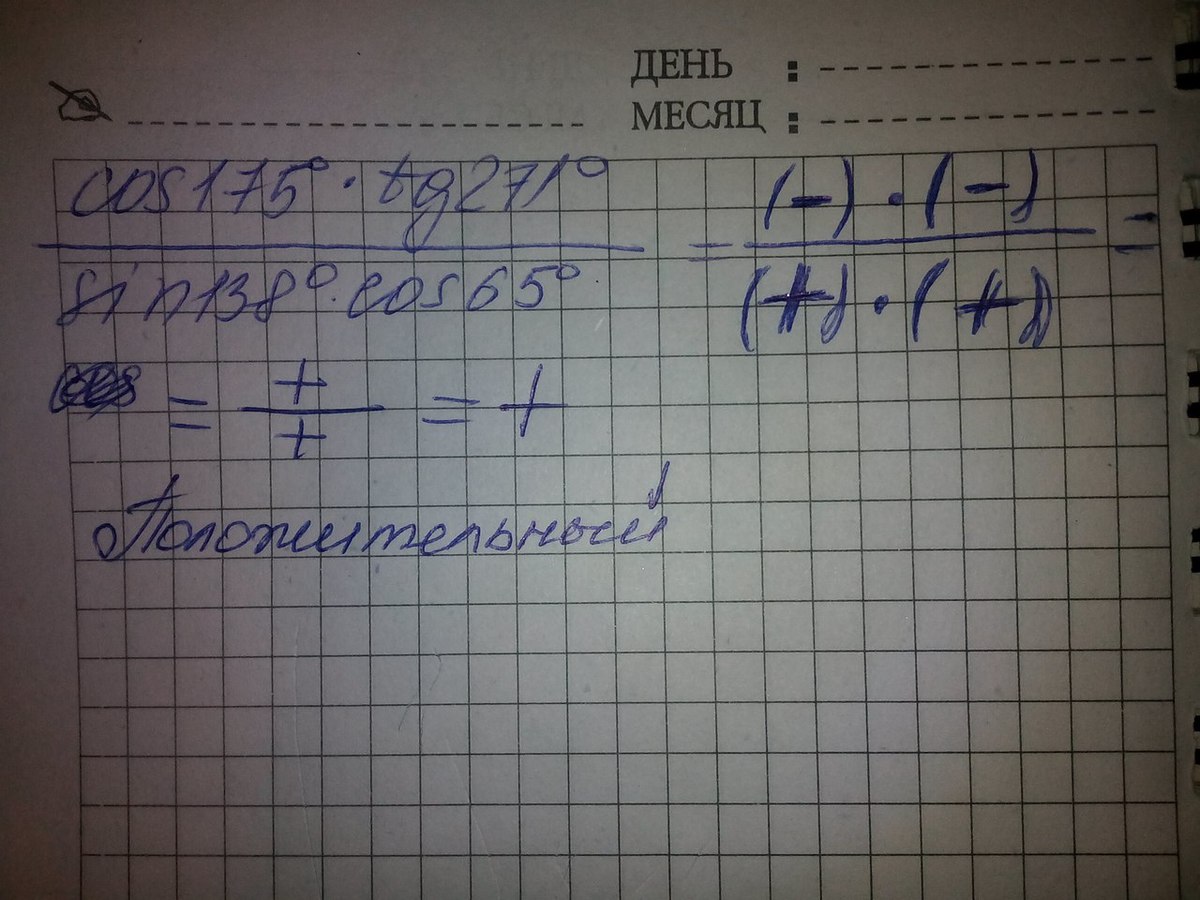 ДЕНЬ :
МЕСЯЦ :
cos175° · tg271° / sin138° · cos65° = (-) · (-) / (+) · (+) =
= + / + = +
Положительный